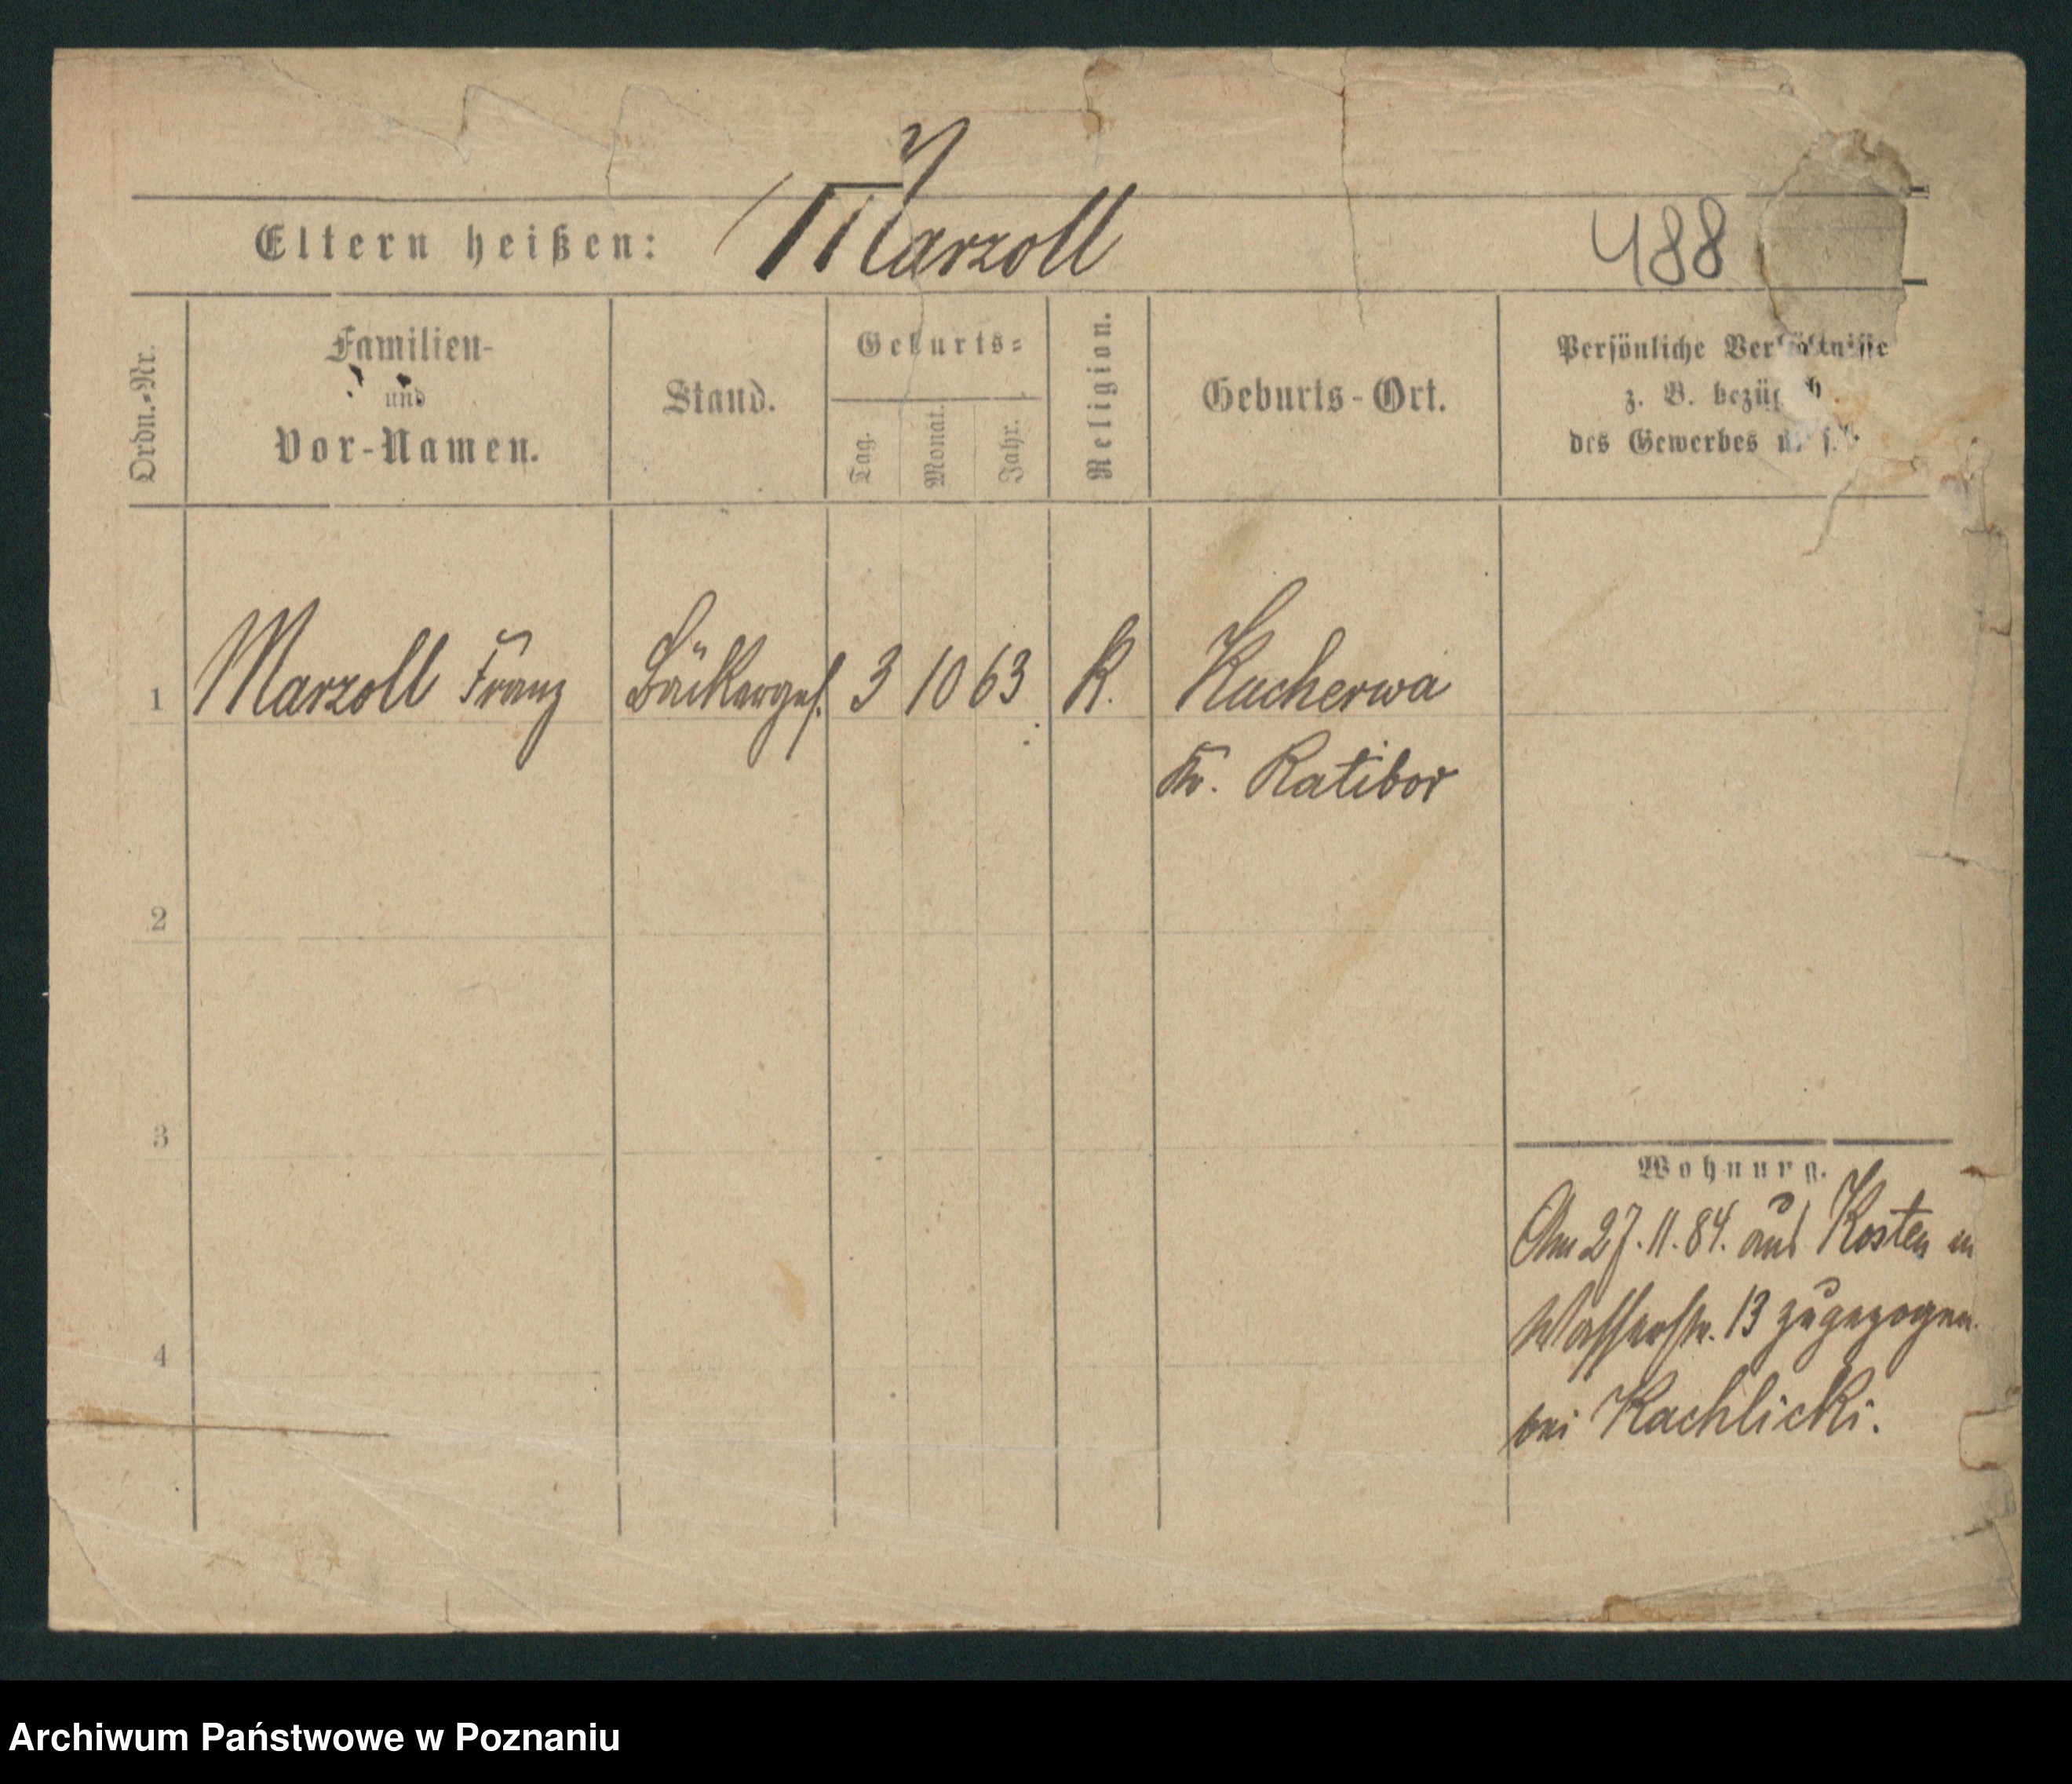 Eltern heißen: Marzoll 488
Ordn.-Nr.
Familien-
und
Vor-Namen.
Stand.
Geburts-
Tag.
Monat.
Jahr.
Religion.
Geburts-Ort.
Persönliche Verhältnisse
z. B. bezüglich
des Gewerbes u. s. w.
1 Marzoll Franz Bäckerges. 3 10 63 K. Kucherwa
Kr. Ratibor
2
3
4
Wohnung.
Am 27.11.84. aus Kosten in
Wasserstr. 13 zugezogen
bei Kachlicki.
Archiwum Państwowe w Poznaniu